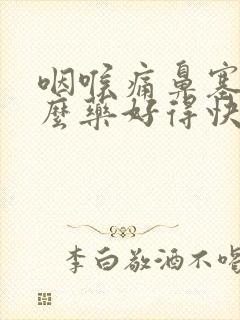 咽喉痛鼻塞
麼藥好得快
李白敬酒不喝